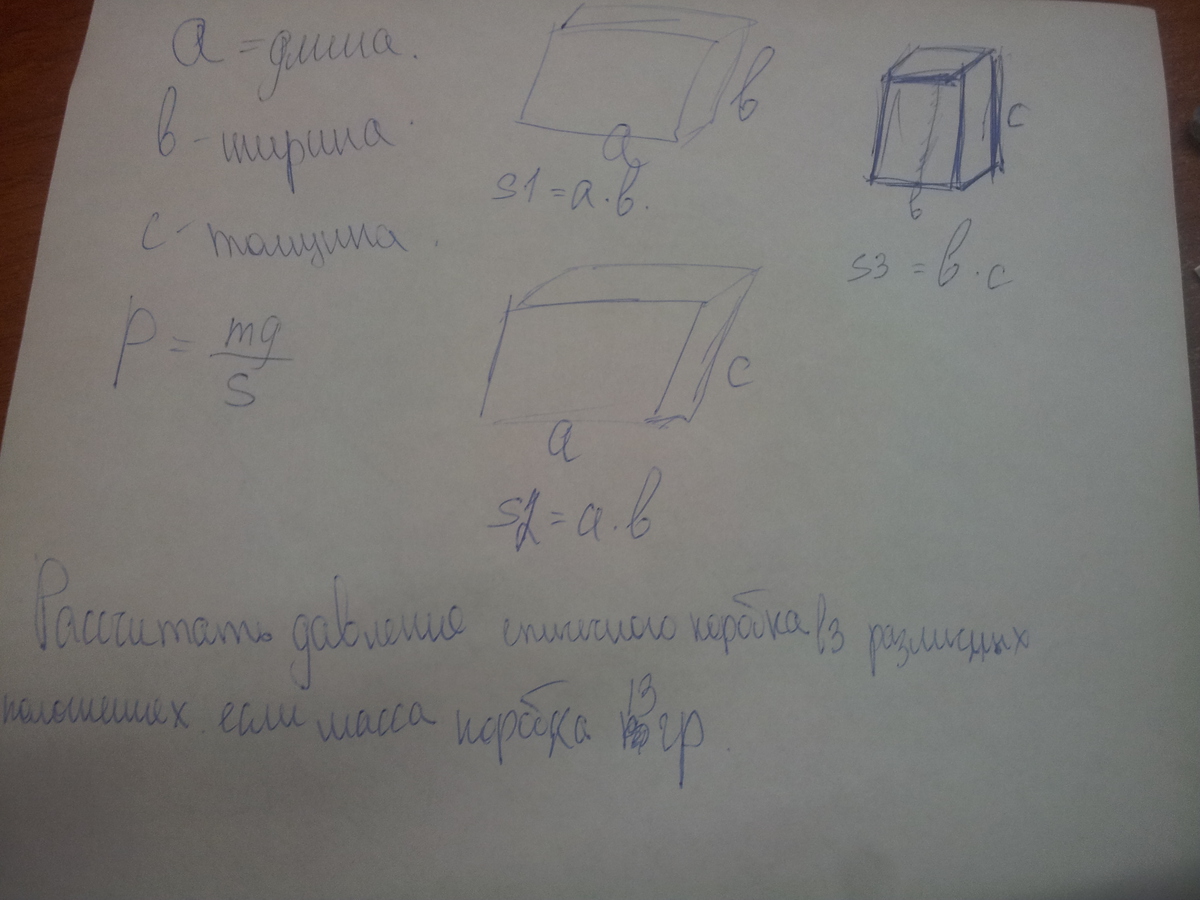 a = длина.
в - ширина
с - толщина.
P = mg / S
a
в
S1 = a · в.
в
с
S3 = в · с
a
с
S2 = a · в
Рассчитать давление спичечного коробка в 3 различных
положениях если масса коробка 13 гр.